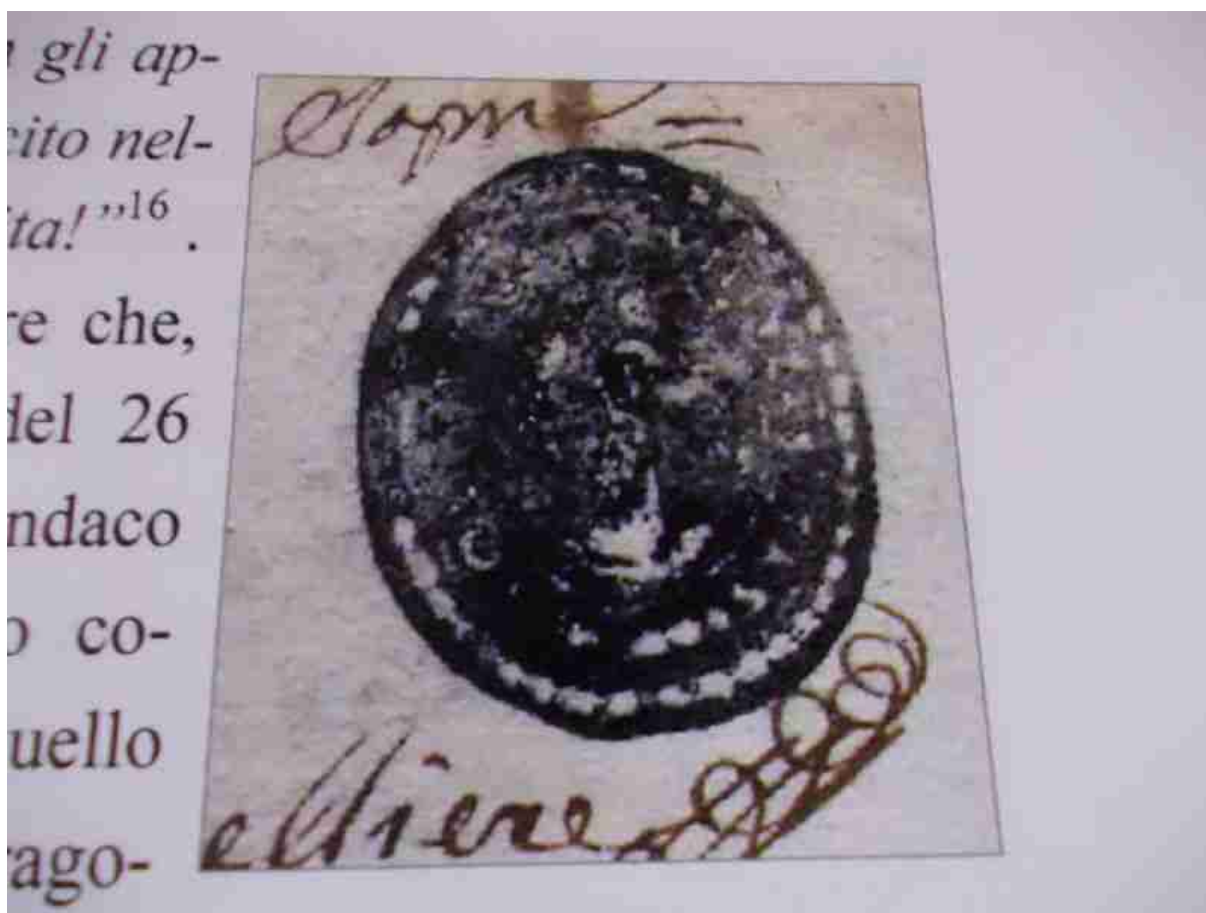 gli ap-
cito nel-
ita!”16 .
re che,
del 26
ndaco
o co-
uello
ago-